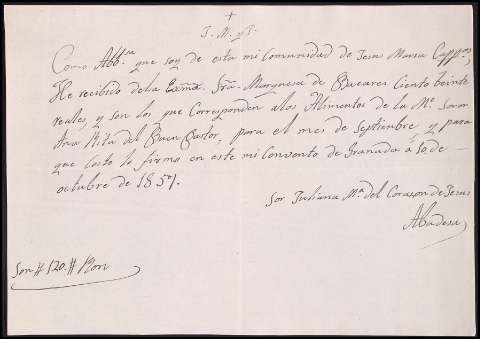 +
J. M. y J.
Como Abb.sa que soy de esta mi Comunidad de Jesus Maria Capp.nas
He recibido dela Exma. Sra. Marquesa de Ciento beinte
reales, y son los que Corresponden alos Alimentos de la Me. Soror
Ana Rita del Buen Pastor, para el mes de Septiembre y para
que coste lo firmo en este mi Convento de Granada á 10 de
octubre de 1857.
Sor Juliana Ma. del Corason de Jesus
Abadesa
Son # 120. # Ron